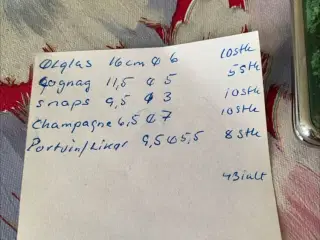 Ølglas 16cm Ø 6 10stk
Cognag 11,5 Ø 5 5stk
snaps 9,5 Ø 3 10stk
Champagne 6,5 Ø 7 10stk
Portvin/Likør 9,5 Ø 5,5 8stk
43 ialt